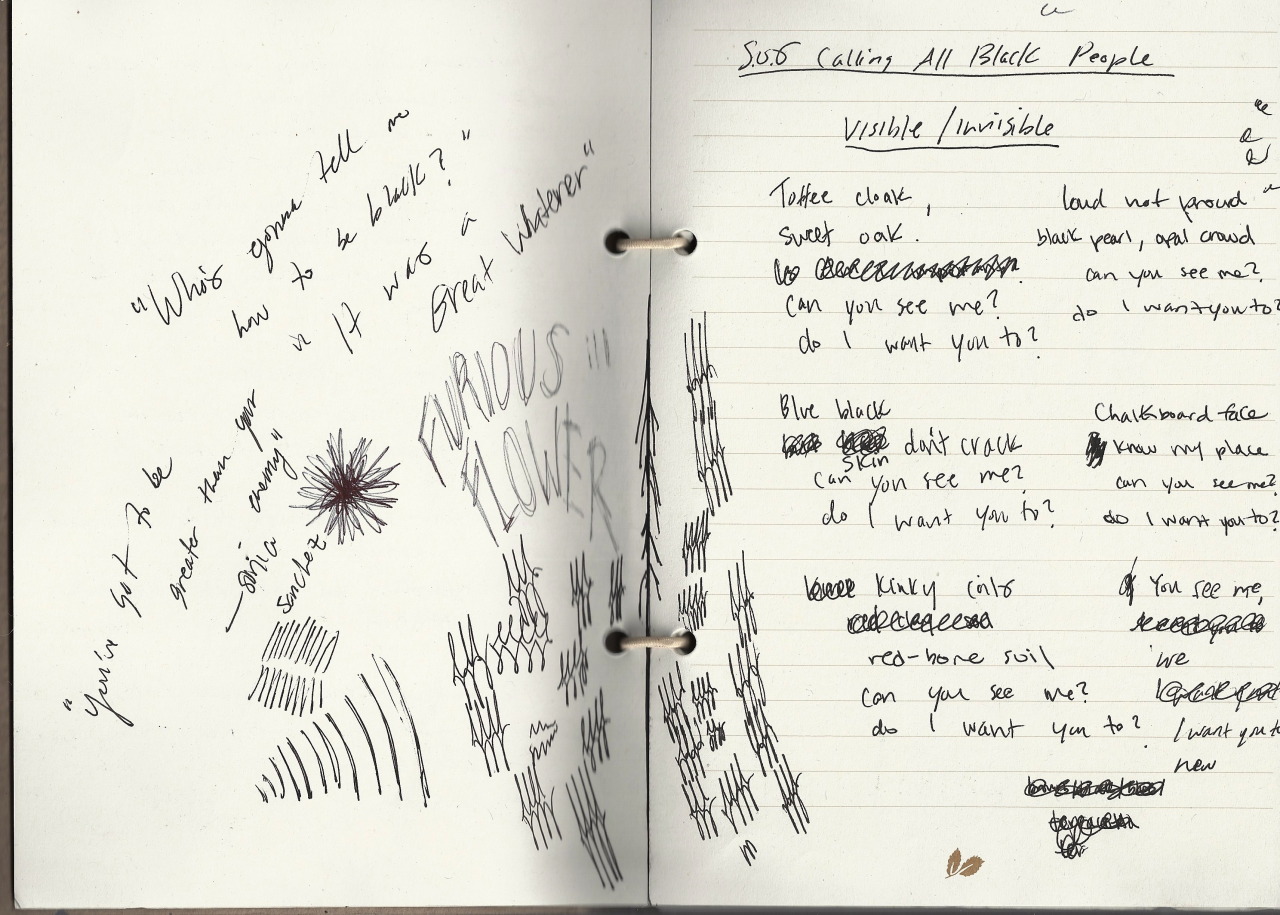 "Who's gonna tell me
how to be black?"
It was a
Great Whatever"
FURIOUS
FLOWER
"You've got to be
greater than your
enemy"
— Sonia
Sanchez
S.O.S Calling All Black People
Visible / Invisible
Toffee cloak,
sweet oak.
can you see me?
do I want you to?
Blue black
skin don't crack
can you see me?
do I want you to?
kinky coils
red-bone soil
can you see me?
do I want you to?
loud not proud
black pearl, opal crowd
can you see me?
do I want you to?
Chalkboard face
know my place
can you see me?
do I want you to?
You see me,
we
I want you to
new